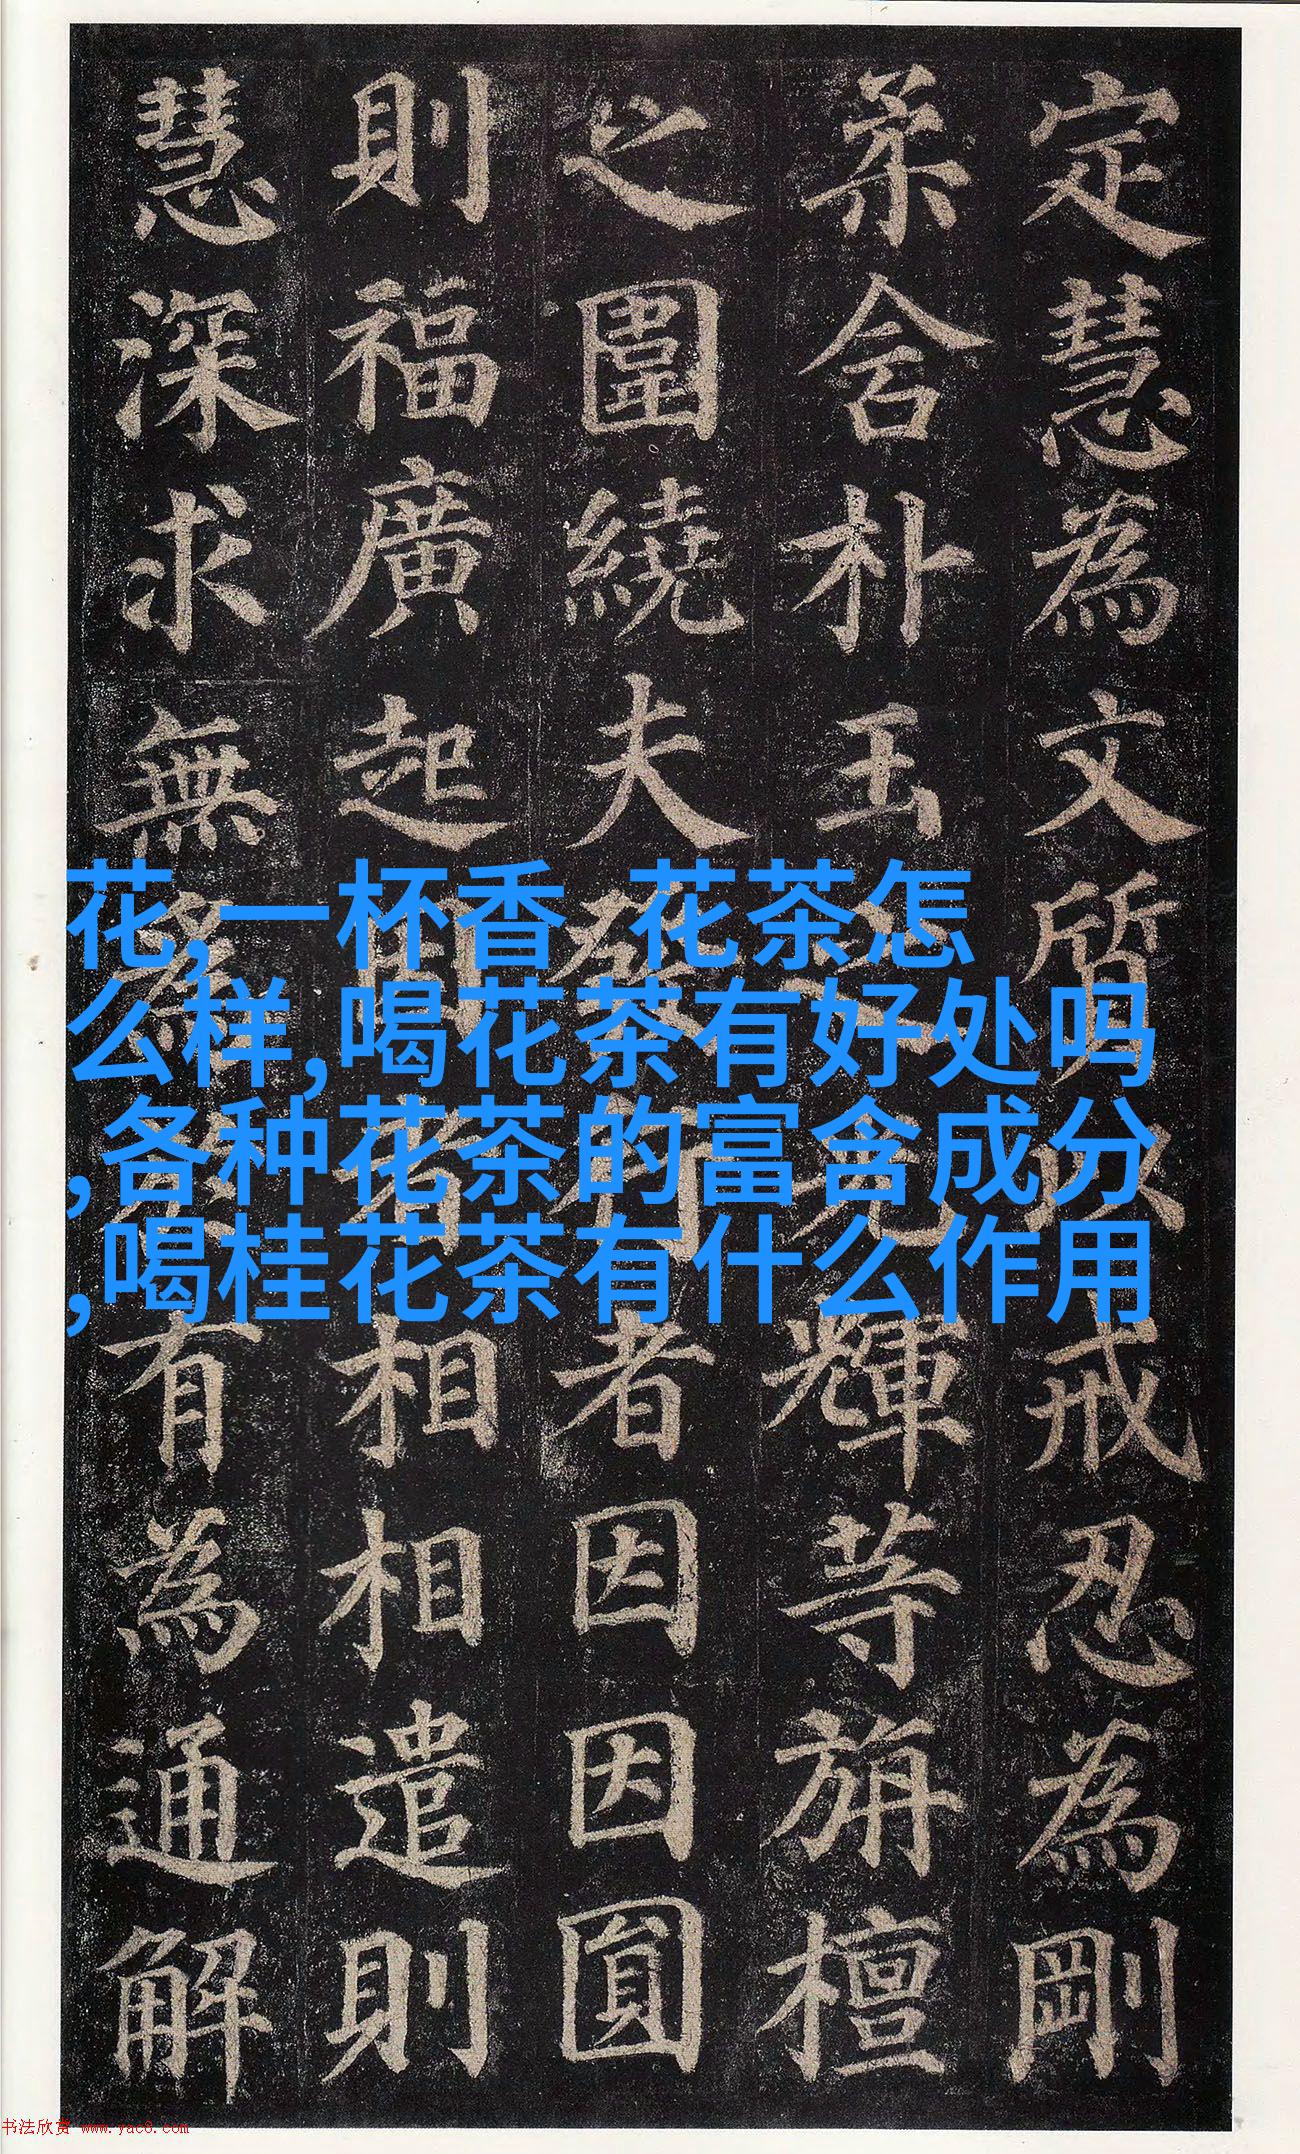 定慧為文質以戒忍為剛
柔含朴玉之光輝等旃檀
之圍繞夫發行者因因圓
則福廣起因者相相遣則
慧深求無為於有為通解
花,一杯香 花茶怎
么样,喝花茶有好处吗
,各种花茶的富含成分
,喝桂花茶有什么作用
书法欣赏 www.yac8.com